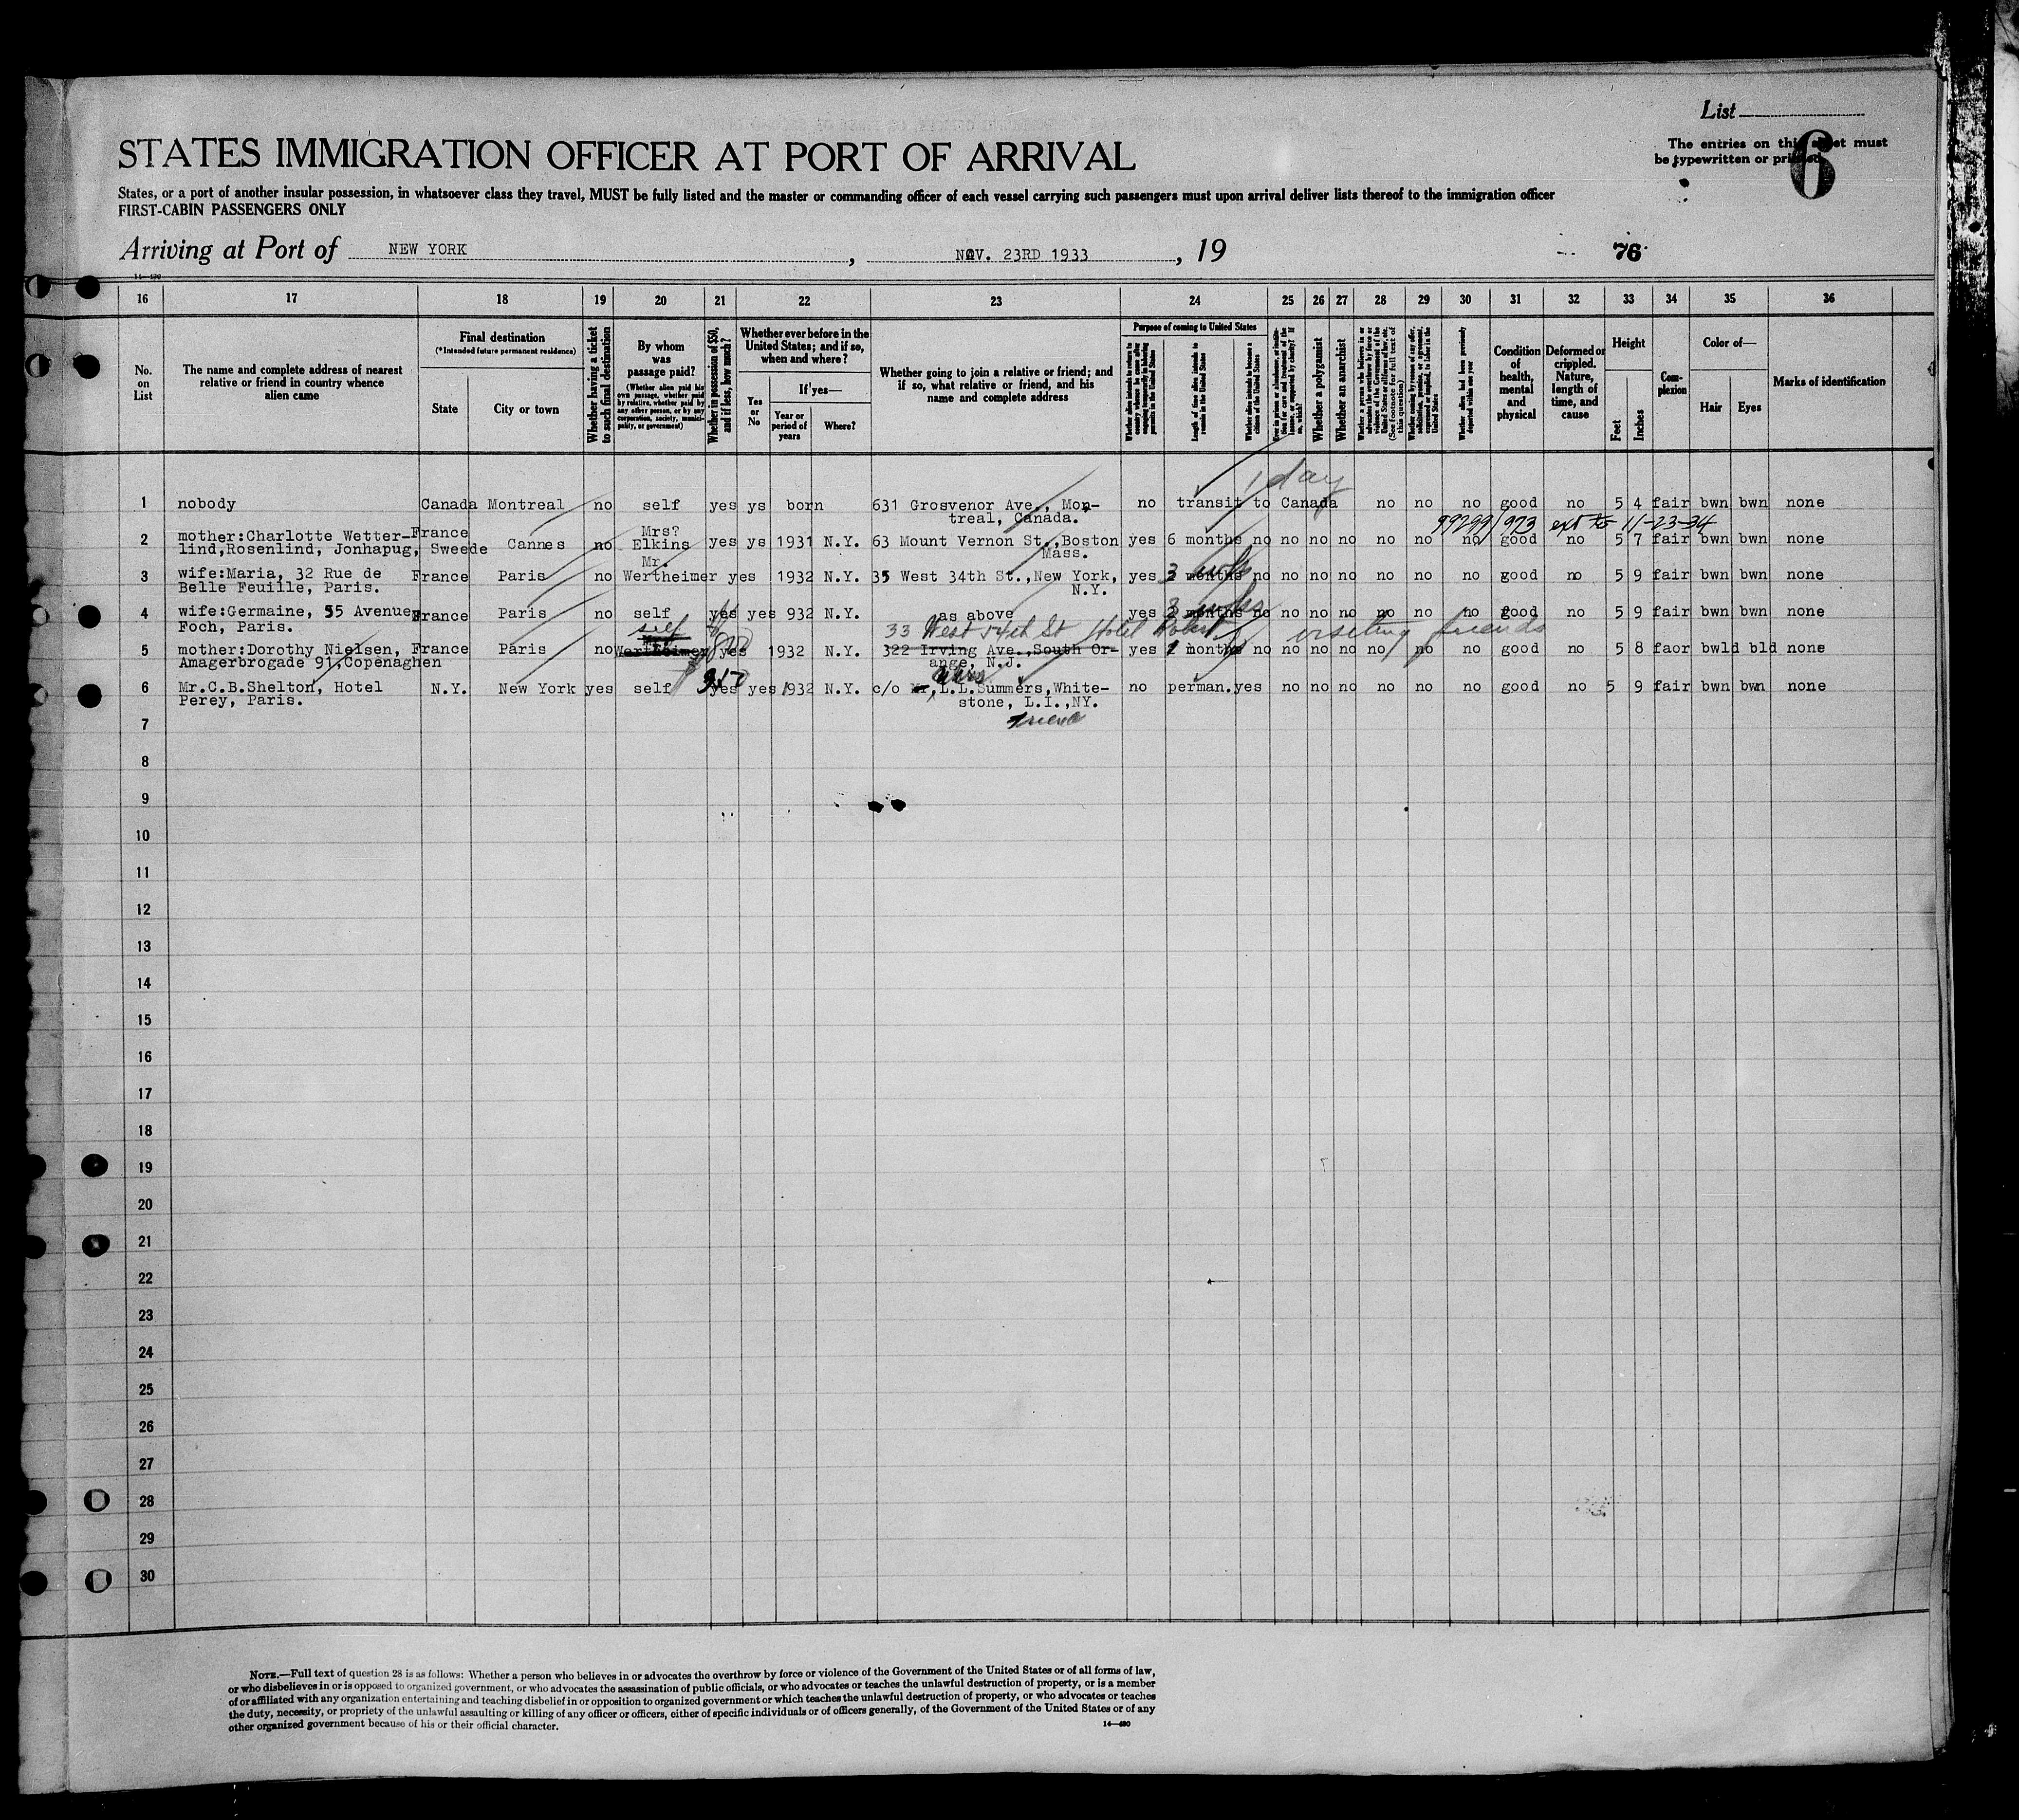 List
The entries on this sheet must
be typewritten or printed
6
STATES IMMIGRATION OFFICER AT PORT OF ARRIVAL
States, or a port of another insular possession, in whatsoever class they travel, MUST be fully listed and the master or commanding officer of each vessel carrying such passengers must upon arrival deliver lists thereof to the immigration officer
FIRST-CABIN PASSENGERS ONLY
Arriving at Port of NEW YORK , NOV. 23RD 1933 , 19
76
14—480
16 17 18 19 20 21 22 23 24 25 26 27 28 29 30 31 32 33 34 35 36
No. on List
The name and complete address of nearest
relative or friend in country whence
alien came
Final destination
(*Intended future permanent residence)
State
City or town
Whether having a ticket
to such final destination
By whom
was
passage paid?
(Whether alien paid his
own passage, whether paid
by relative, whether paid by
any other person, or by any
corporation, society, munici-
pality, or government)
Whether in possession of $50,
and if less, how much?
Whether ever before in the
United States; and if so,
when and where?
Yes
or
No
If yes—
Year or
period of
years
Where?
Whether going to join a relative or friend; and
if so, what relative or friend, and his
name and complete address
Purpose of coming to United States
Length of time alien intends to
remain in the United States
Whether alien intends to become a
citizen of the United States
Whether a polygamist
Whether an anarchist
(See footnote for full text of
this question)
Whether alien had been previously
deported within one year
Condition
of
health,
mental
and
physical
Deformed or
crippled.
Nature,
length of
time, and
cause
Height
Feet
Inches
Com-
plexion
Color of—
Hair
Eyes
Marks of identification
1 day
1 nobody Canada Montreal no self yes ys born 631 Grosvenor Ave., Mon- no transit to Canada no no no good no 5 4 fair bwn bwn none
treal, Canada.
99299/973 ext to 11-23-34
mother:Charlotte Wetter- France Mrs?
2 lind,Rosenlind, Jonhapug, Sweede Cannes no Elkins yes ys 1931 N.Y. 63 Mount Vernon St.,Boston yes 6 months no no no no no no no good no 5 7 fair bwn bwn none
Mass.
wife:Maria, 32 Rue de Mr.
3 France Paris no Wertheimer yes 1932 N.Y. 35 West 34th St.,New York, yes 3 months no no no no no no no good no 5 9 fair bwn bwn none
Belle Feuille, Paris. N.Y.
4 wife:Germaine, 55 Avenue France Paris no self yes yes 932 N.Y. as above yes 3 months no no no no no no no good no 5 9 fair bwn bwn none
Foch, Paris.
self 33 West 54th St Hotel visiting friends
5 mother:Dorothy Nielsen, France Paris no Wertheimer yes 1932 N.Y. 322 Irving Ave.,South Or- yes months no no no no no no no good no 5 8 faor bwld bld none
Amagerbrogade 91,Copenaghen ange, N.J.
Mrs
6 Mr.C.B.Shelton, Hotel N.Y. New York yes self yes yes 1932 N.Y. c/o Mr,L.L.Summers,White- no perman.yes no no no no no no good no 5 9 fair bwn bwn none
Perey, Paris. stone, L.I.,NY.
friend
7
8
9
10
11
12
13
14
15
16
17
18
19
20
21
22
23
24
25
26
27
28
29
30
NOTE.—Full text of question 28 is as follows: Whether a person who believes in or advocates the overthrow by force or violence of the Government of the United States or of all forms of law,
or who disbelieves in or is opposed to organized government, or who advocates the assassination of public officials, or who advocates or teaches the unlawful destruction of property, or is a member
of or affiliated with any organization entertaining and teaching disbelief in or opposition to organized government or which teaches the unlawful destruction of property, or who advocates or teaches
the duty, necessity, or propriety of the unlawful assaulting or killing of any officer or officers, either of specific individuals or of officers generally, of the Government of the United States or of any
other organized government because of his or their official character.
14—480